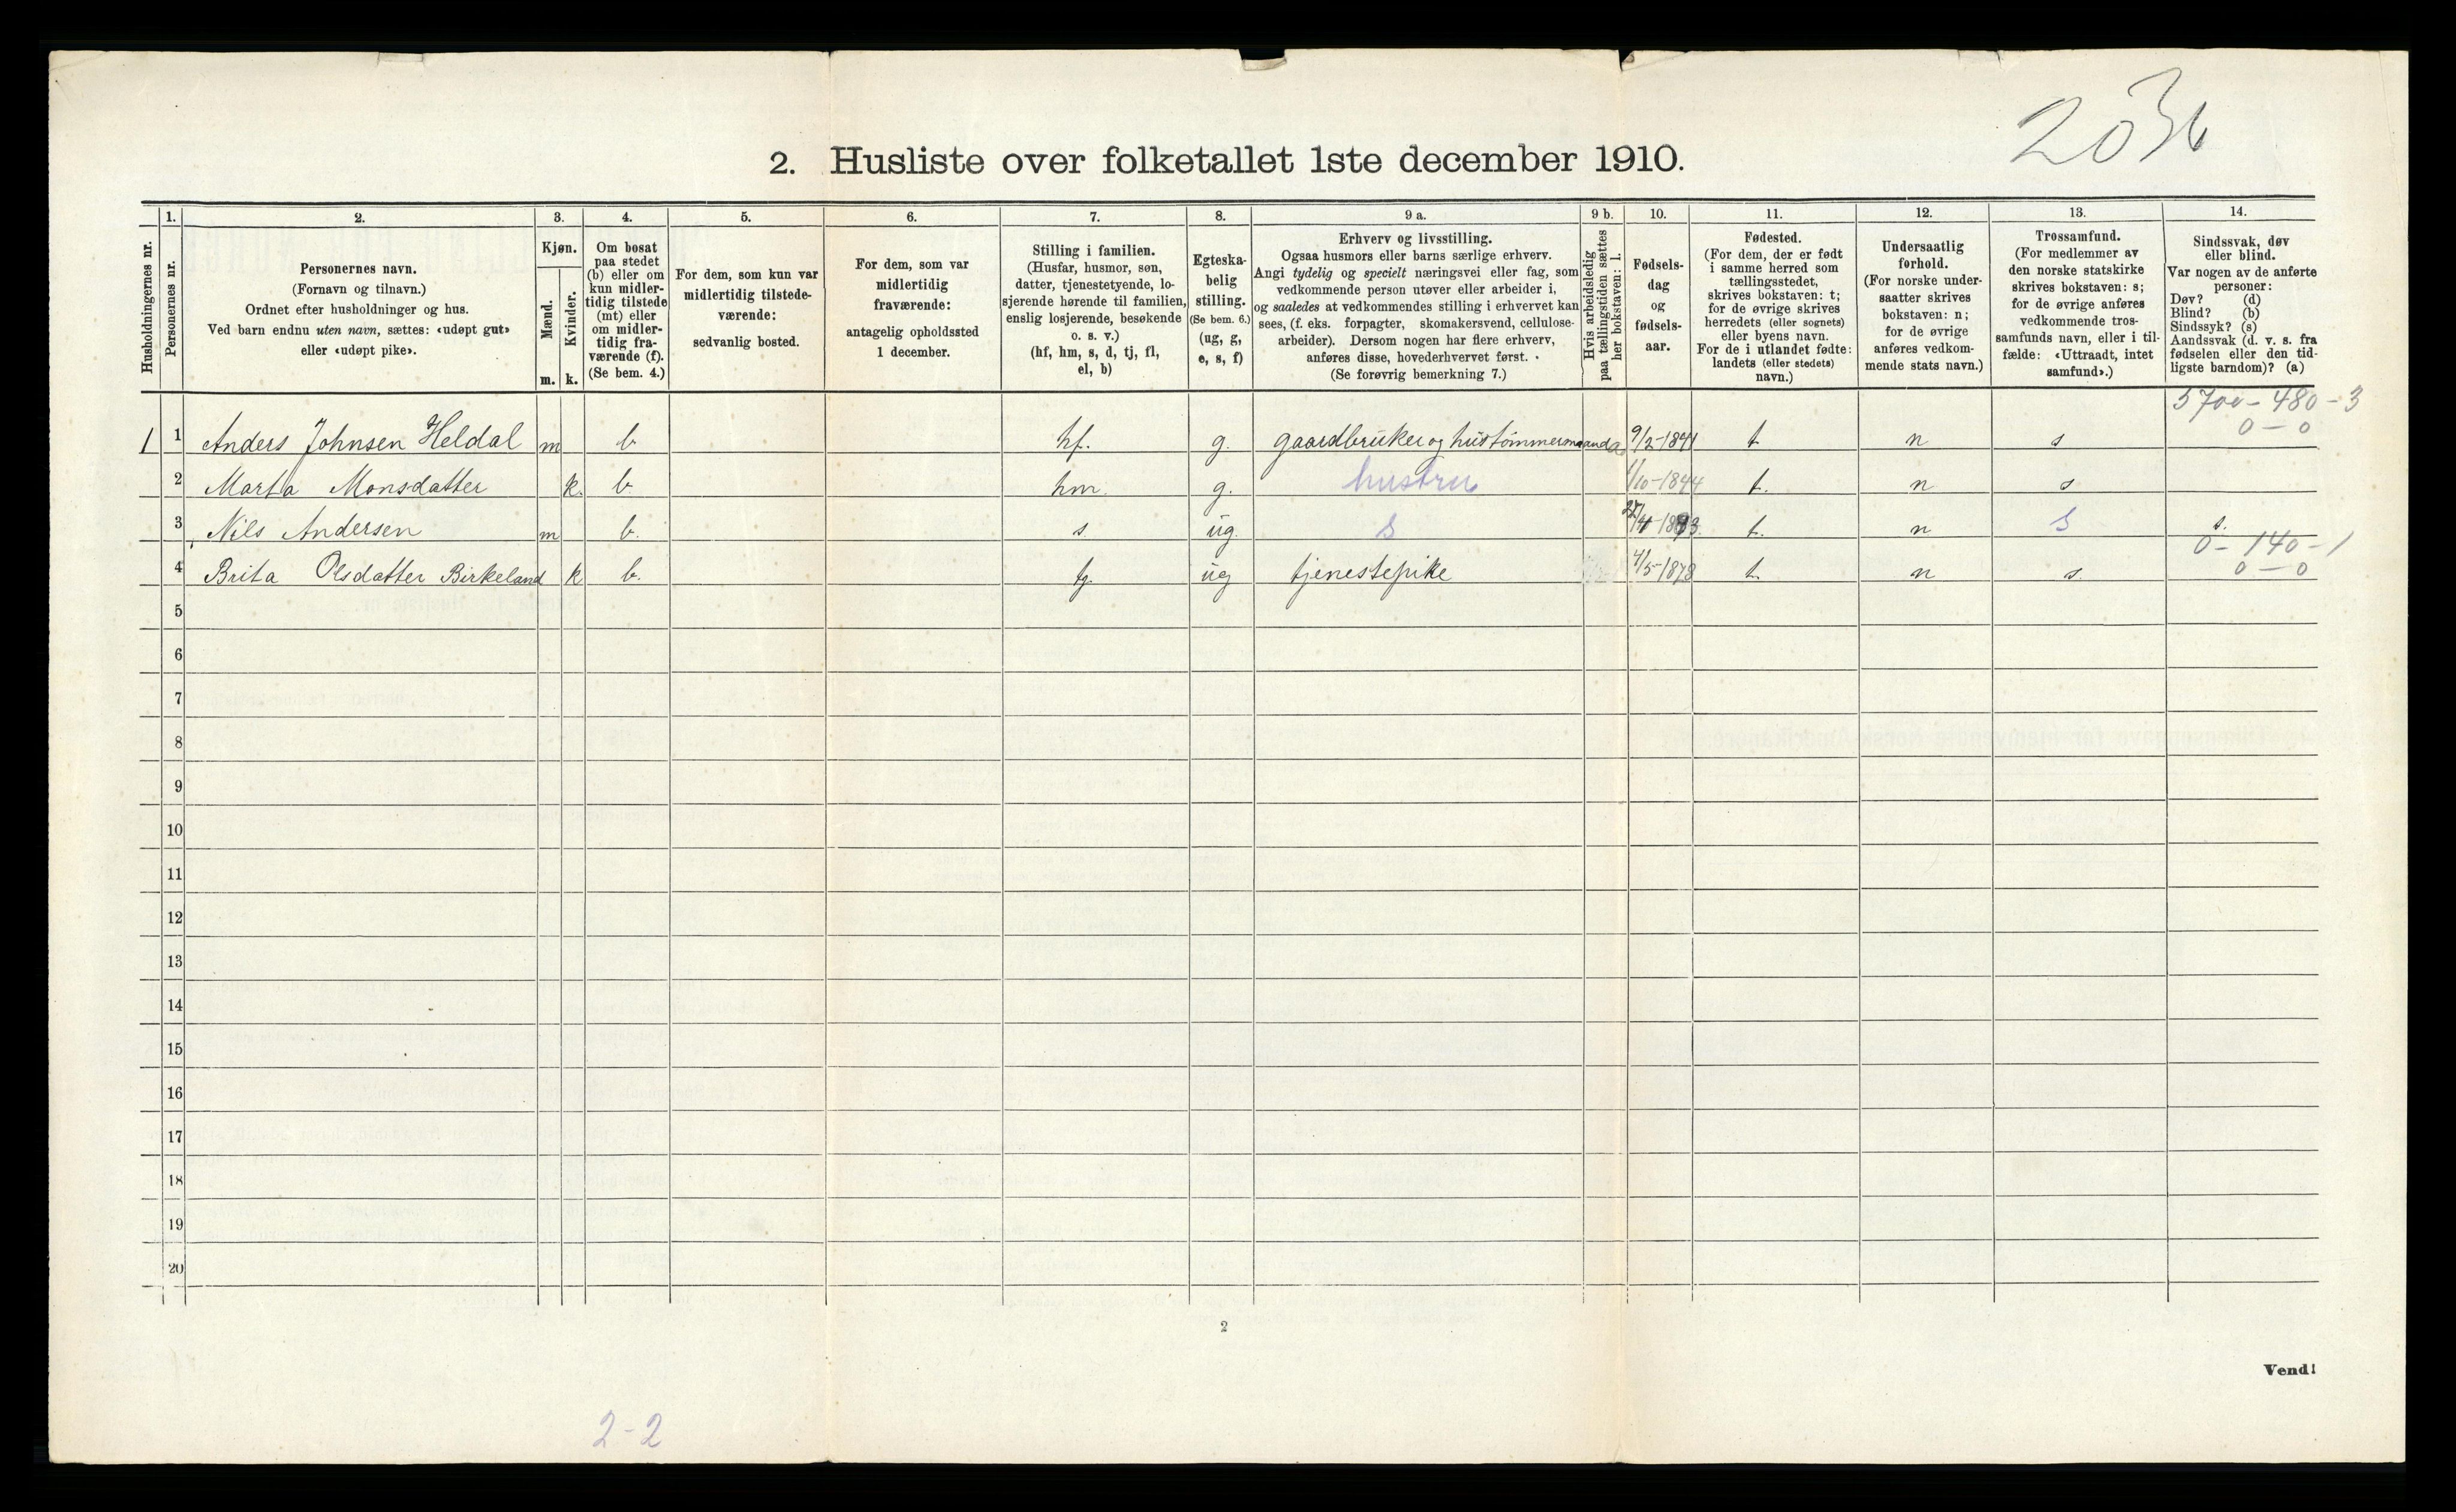 2036
2. Husliste over folketallet 1ste december 1910.
Husholdningernes nr.
1.
Personernes nr.
2.
Personernes navn.
(Fornavn og tilnavn.)
Ordnet efter husholdninger og hus.
Ved barn endnu uten navn, sættes: «udøpt gut»
eller «udøpt pike».
3.
Kjøn.
Mænd.
Kvinder.
m. k.
4.
Om bosat
paa stedet
(b) eller om
kun midler-
tidig tilstede
(mt) eller
om midler-
tidig fra-
værende (f).
(Se bem. 4.)
5.
For dem, som kun var
midlertidig tilstede-
værende:
sedvanlig bosted.
6.
For dem, som var
midlertidig
fraværende:
antagelig opholdssted
1 december.
7.
Stilling i familien.
(Husfar, husmor, søn,
datter, tjenestetyende, lo-
sjerende hørende til familien,
enslig losjerende, besøkende
o. s. v.)
(hf, hm, s, d, tj, fl,
el, b)
8.
Egteska-
belig
stilling.
(Se bem. 6.)
(ug, g,
e, s, f)
9 a.
Erhverv og livsstilling.
Ogsaa husmors eller barns særlige erhverv.
Angi tydelig og specielt næringsvei eller fag, som
vedkommende person utøver eller arbeider i,
og saaledes at vedkommendes stilling i erhvervet kan
sees, (f. eks. forpagter, skomakersvend, cellulose-
arbeider). Dersom nogen har flere erhverv,
anføres disse, hovederhvervet først.
(Se forøvrig bemerkning 7.)
9 b.
Hvis arbeidsledig
paa tællingstiden sættes
her bokstaven: l.
10.
Fødsels-
dag
og
fødsels-
aar.
11.
Fødested.
(For dem, der er født
i samme herred som
tællingsstedet,
skrives bokstaven: t;
for de øvrige skrives
herredets (eller sognets)
eller byens navn.
For de i utlandet fødte:
landets (eller stedets)
navn.)
12.
Undersaatlig
forhold.
(For norske under-
saatter skrives
bokstaven: n;
for de øvrige
anføres vedkom-
mende stats navn.)
13.
Trossamfund.
(For medlemmer av
den norske statskirke
skrives bokstaven: s;
for de øvrige anføres
vedkommende tros-
samfunds navn, eller i til-
fælde: «Uttraadt, intet
samfund».)
14.
Sindssvak, døv
eller blind.
Var nogen av de anførte
personer:
Døv? (d)
Blind? (b)
Sindssyk? (s)
Aandssvak (d. v. s. fra
fødselen eller den tid-
ligste barndom)? (a)
5700 - 480 - 3
0 - 0
1 1 Anders Johnsen Heldal m b hf. g. gaardbruker og hustømmermand 9/2-1841 t n s
2 Marta Monsdatter k. b hm. g. hustru 1/10-1844 t. n s
3 Nils Andersen m b. s ug. S t. n S s.
0 - 140 - 1
0 - 0
4 Brita Olsdatter Birkeland k b. tj. ug tjenestepike 4/5-1878 t. n s.
5
6
7
8
9
10
11
12
13
14
15
16
17
18
19
20
2
Vend!
2-2